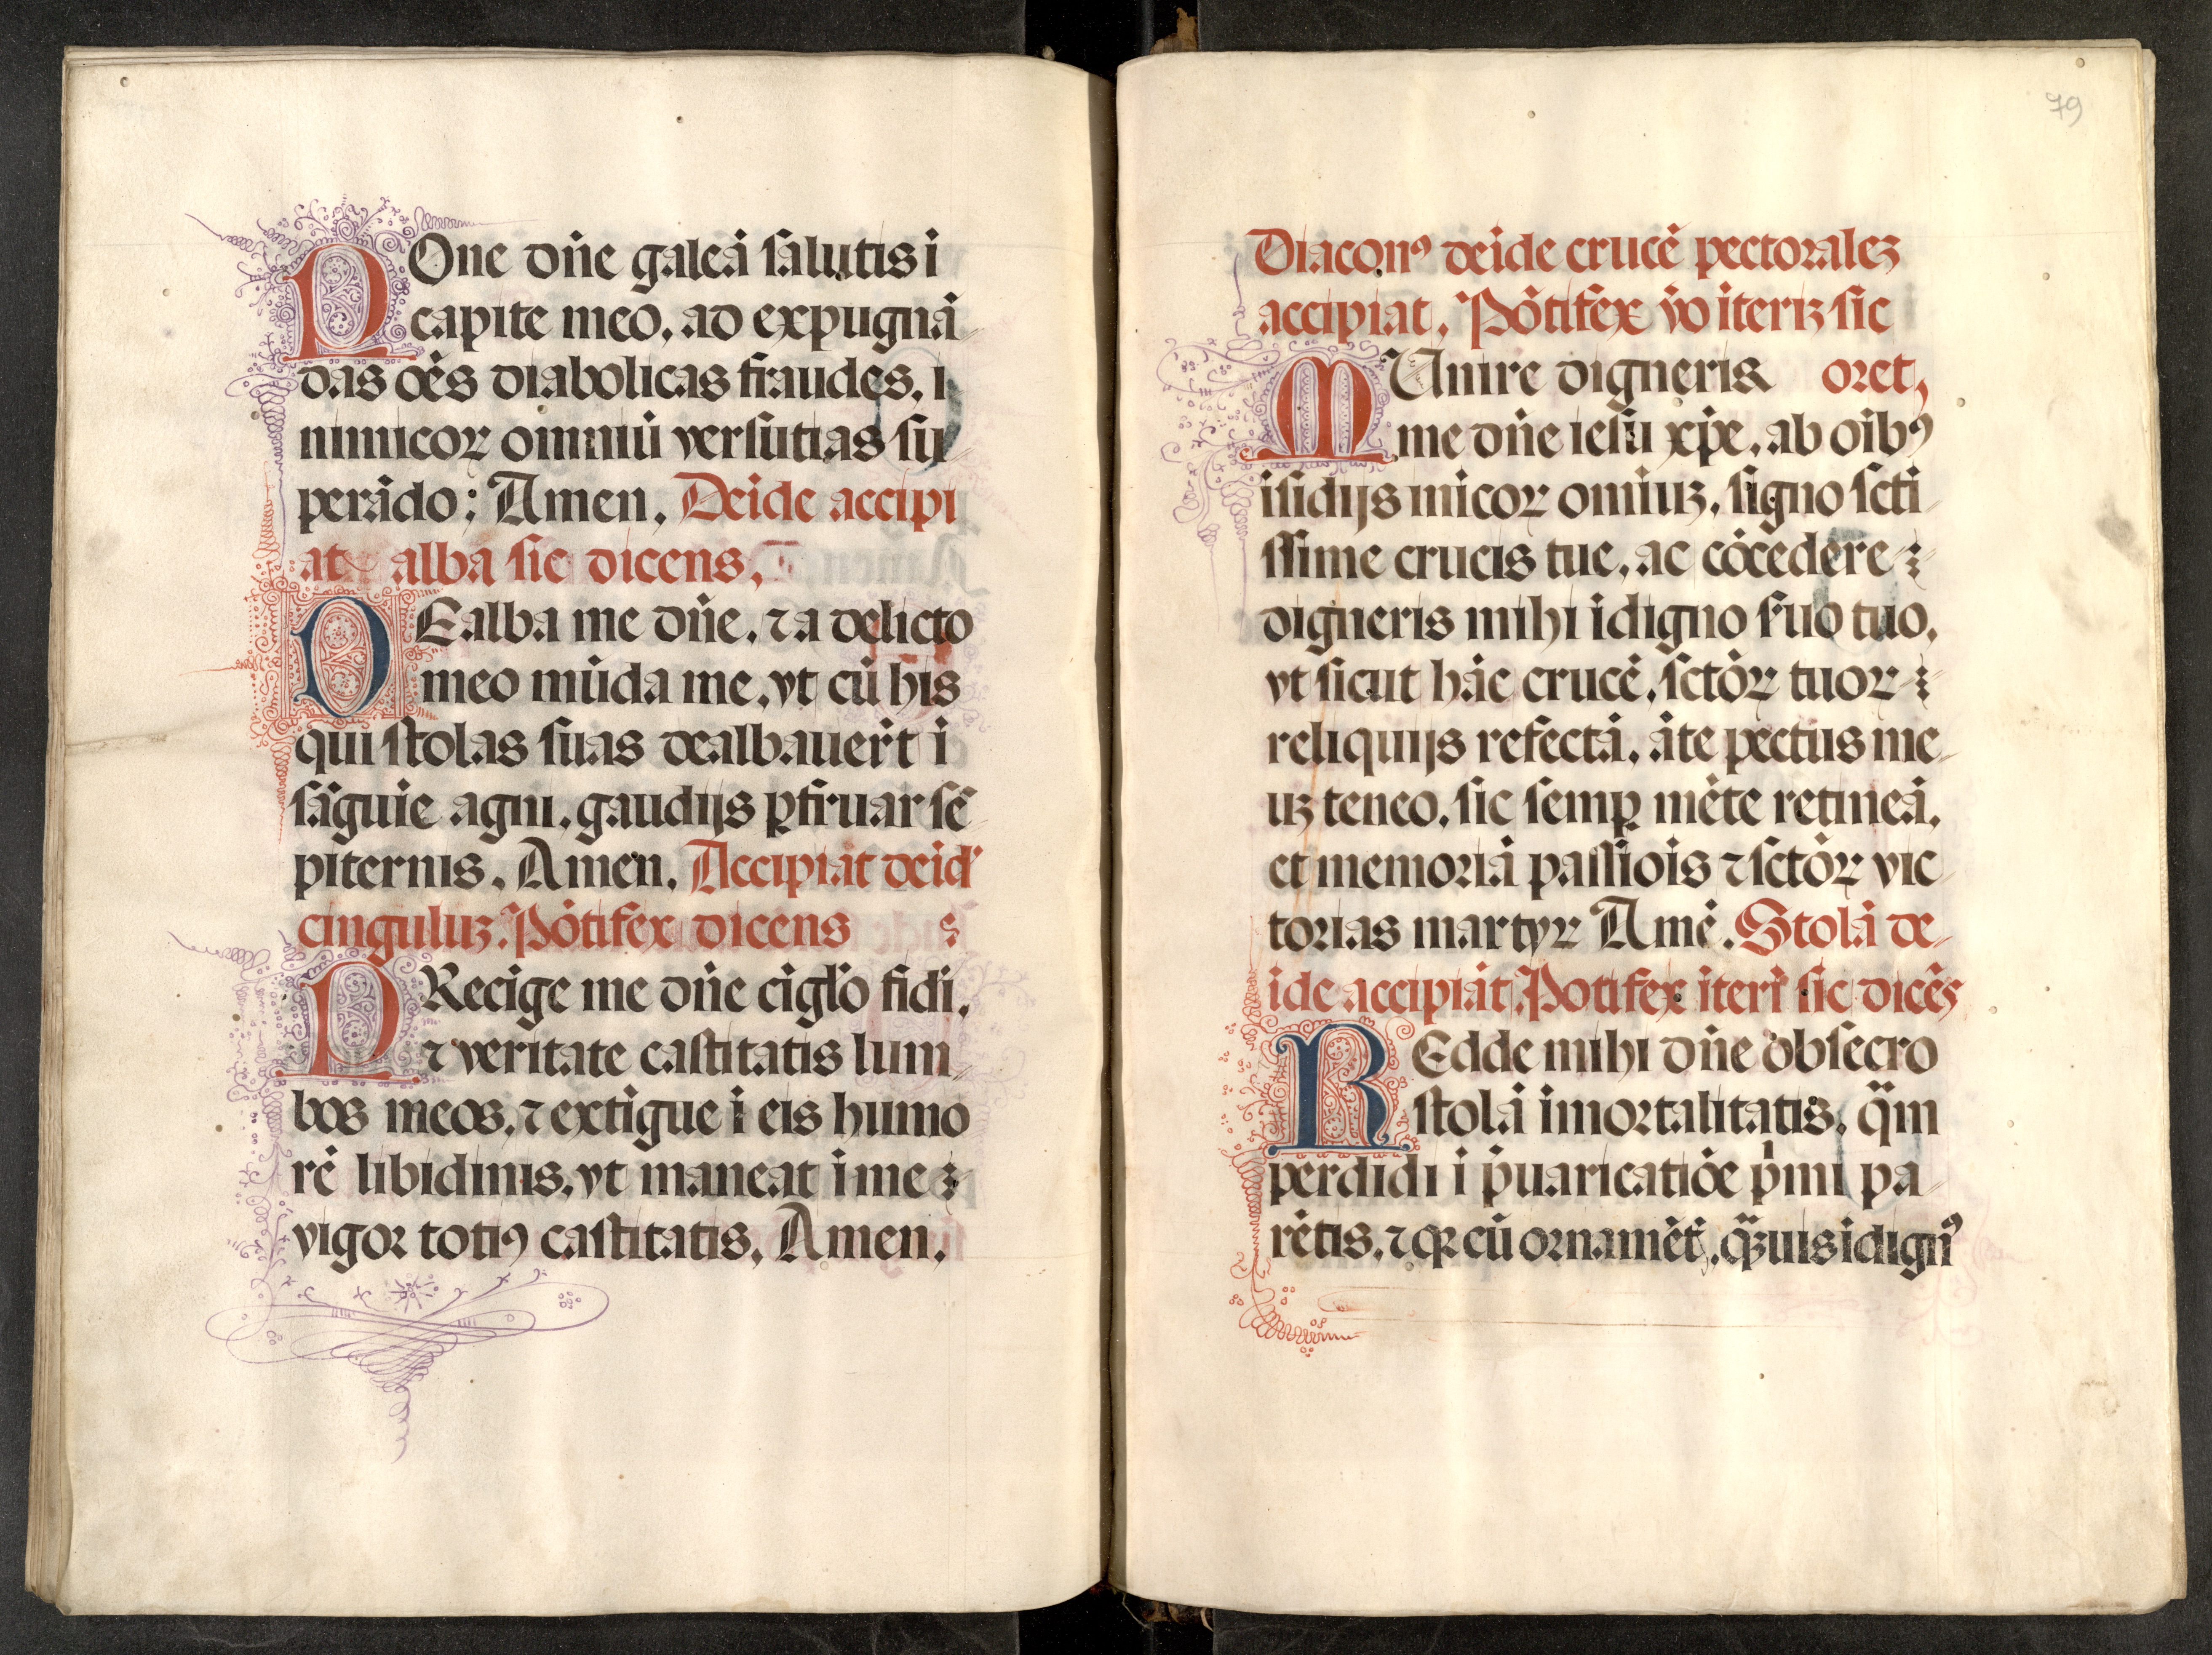 POne dn̄e galeā salutis ī
capite meo, ad expugnā
das oēs diabolicas fraudes, i
nimicoꝝ omniū versutias su
perādo: Amen, Deīde accipi
at alba sic dicens,
DEalba me dn̄e, ⁊ a delicto
meo mūda me, vt cū his
qui stolas suas dealbauert̄ ī
sāguīe agni, gaudijs ꝑfruar sē
piternis, Amen, Accipiat deīd'
cinguluꝫ, Pōtifex dicens
PRecīge me dn̄e cīgl'o fidi,
⁊ veritate castitatis lum
bos meos, ⁊ extīgue ī eis humo
rē libidinis, vt maneat ī me
vigor totiꝰ castitatis, Amen,
79
Diaconꝰ deīde crucē pectoraleꝫ
accipiat, Pōtifex v̄o iteruꝫ sic
MUnire digneris oret,
me dn̄e iesu xp̄e, ab oībꝰ
īsidijs inīcoꝝ omniuꝫ, signo scti
ssime crucis tue, ac cōcedere
digneris mihi īdigno s'uo tuo,
vt sicut hāc crucē, sctōꝝ tuoꝝ
reliquijs refectā, āte pectus me
uꝫ teneo, sic semꝑ mēte retineā,
et memoriā passiōis ⁊ sctōꝝ vic
torias martyꝝ Amē, Stolā de
īde accipiat, Pōtifex iterū sic dicēs
REdde mihi dn̄e obsecro
stolā īmortalitatis, q̄m
perdidi ī p̄uaricatiōe p̄mi pa
rētis, ⁊ qꝛ cū ornamēt, q̄ꝫuis īdignꝰ